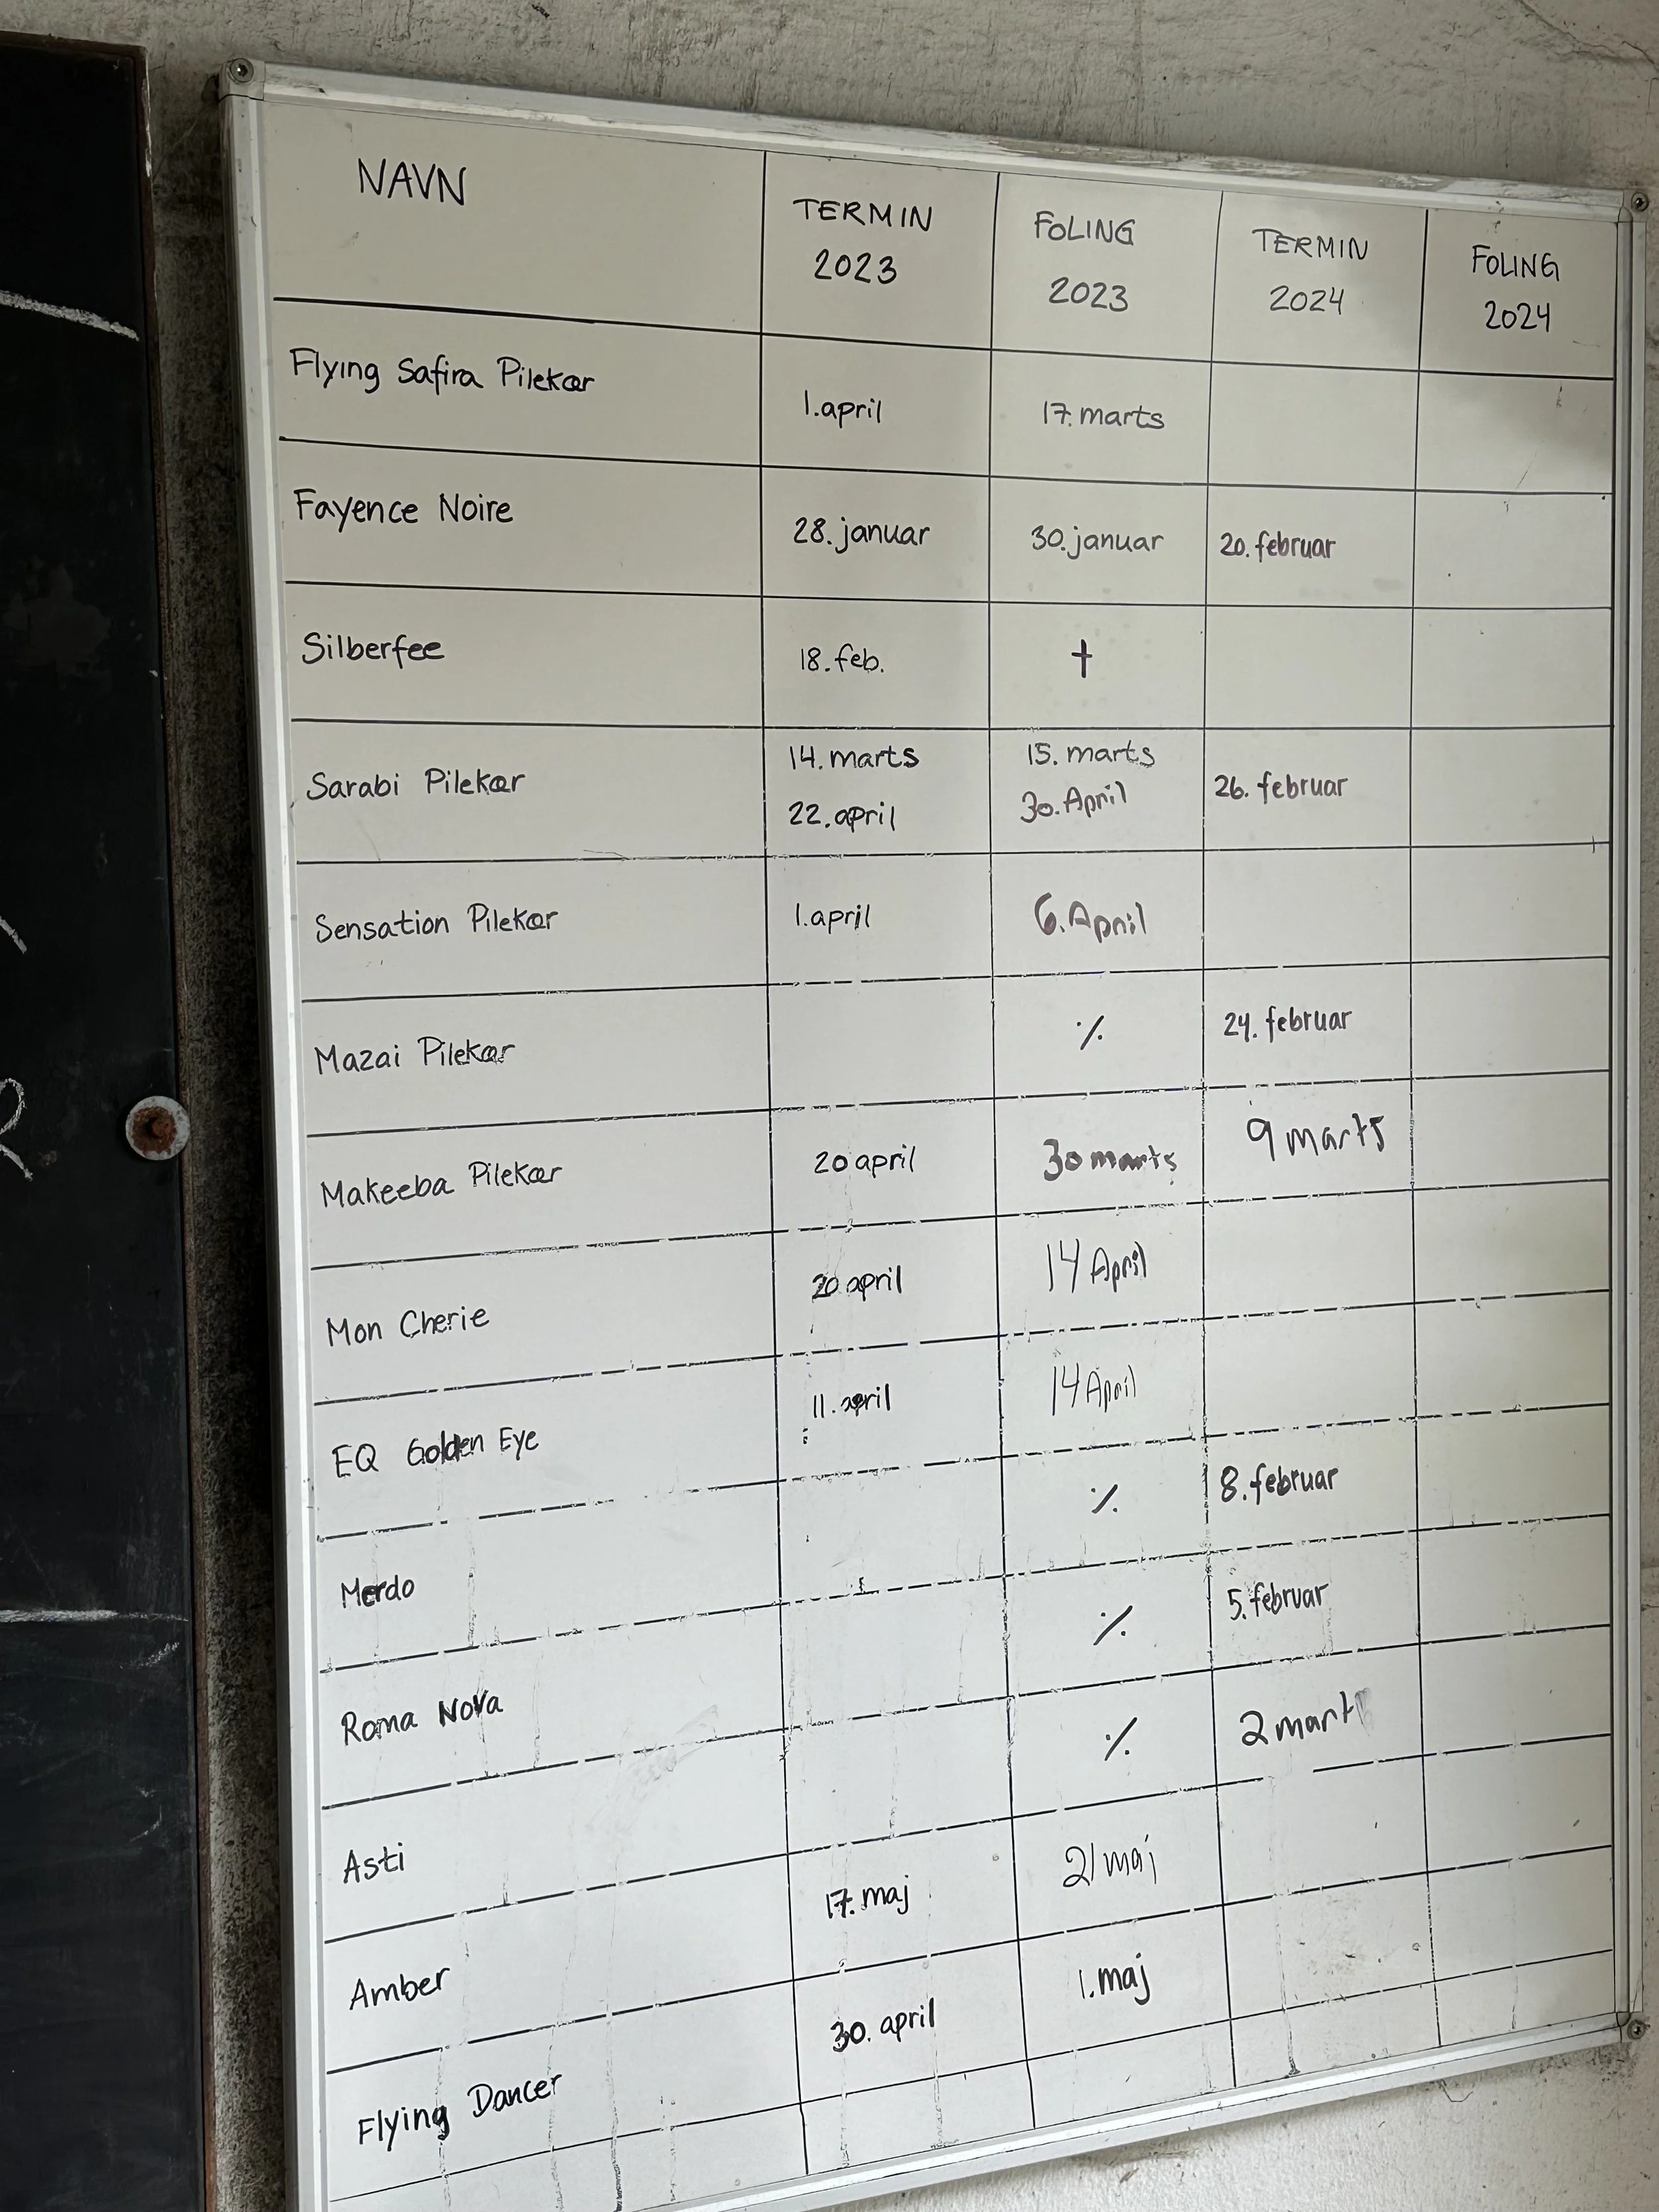 NAVN
TERMIN 2023
FOLING 2023
TERMIN 2024
FOLING 2024
Flying Safira Pilekær
1. april
17. marts
Fayence Noire
28. januar
30. januar
20. februar
Silberfee
18. feb.
†
Sarabi Pilekær
14. marts
22. april
15. marts
30. April
26. februar
Sensation Pilekær
1. april
6. April
Mazai Pilekær
٪
24. februar
Makeeba Pilekær
20 april
30 marts
9 marts
Mon Cherie
20 april
14 April
EQ Golden Eye
11. april
14 April
Merdo
٪
8. februar
Roma Nova
٪
5. februar
Asti
٪
2 marts
Amber
17. maj
21 maj
Flying Dancer
30. april
1. maj